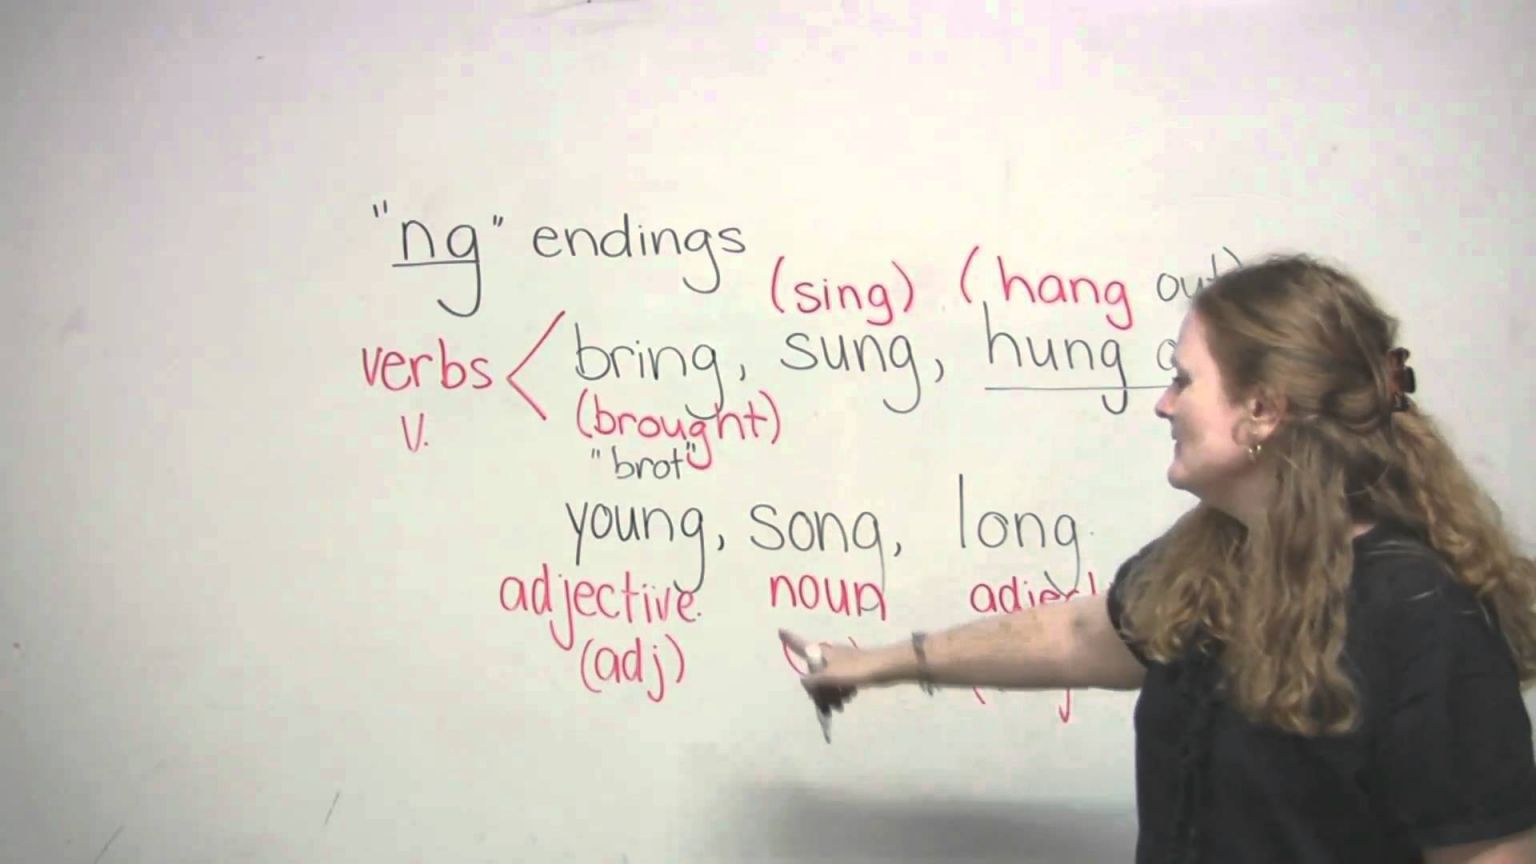 "ng" endings
(sing) (hang out)
verbs < bring, sung, hung
v. (brought)
"brot"
young, song, long
adjective noun
(adj)